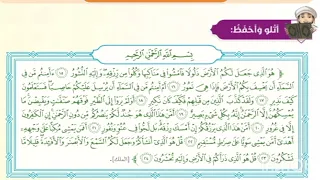 أتلو وأحفظ:
بِسْمِ اللَّهِ الرَّحْمَٰنِ الرَّحِيمِ
﴿ هُوَ الَّذِي جَعَلَ لَكُمُ الْأَرْضَ ذَلُولًا فَامْشُوا فِي مَنَاكِبِهَا وَكُلُوا مِن رِّزْقِهِ ۖ وَإِلَيْهِ النُّشُورُ ﴿١٥﴾ ءَأَمِنتُم مَّن فِي
السَّمَاءِ أَن يَخْسِفَ بِكُمُ الْأَرْضَ فَإِذَا هِيَ تَمُورُ ﴿١٦﴾ أَمْ أَمِنتُم مَّن فِي السَّمَاءِ أَن يُرْسِلَ عَلَيْكُمْ حَاصِبًا ۖ فَسَتَعْلَمُونَ
كَيْفَ نَذِيرِ ﴿١٧﴾ وَلَقَدْ كَذَّبَ الَّذِينَ مِن قَبْلِهِمْ فَكَيْفَ كَانَ نَكِيرِ ﴿١٨﴾ أَوَلَمْ يَرَوْا إِلَى الطَّيْرِ فَوْقَهُمْ صَافَّاتٍ وَيَقْبِضْنَ ۚ مَا
يُمْسِكُهُنَّ إِلَّا الرَّحْمَٰنُ ۚ إِنَّهُ بِكُلِّ شَيْءٍ بَصِيرٌ ﴿١٩﴾ أَمَّنْ هَٰذَا الَّذِي هُوَ جُندٌ لَّكُمْ يَنصُرُكُم مِّن دُونِ الرَّحْمَٰنِ ۚ إِنِ الْكَافِرُونَ
إِلَّا فِي غُرُورٍ ﴿٢٠﴾ أَمَّنْ هَٰذَا الَّذِي يَرْزُقُكُمْ إِنْ أَمْسَكَ رِزْقَهُ ۚ بَل لَّجُّوا فِي عُتُوٍّ وَنُفُورٍ ﴿٢١﴾ أَفَمَن يَمْشِي مُكِبًّا عَلَىٰ وَجْهِهِ
أَهْدَىٰ أَمَّن يَمْشِي سَوِيًّا عَلَىٰ صِرَاطٍ مُّسْتَقِيمٍ ﴿٢٢﴾ قُلْ هُوَ الَّذِي أَنشَأَكُمْ وَجَعَلَ لَكُمُ السَّمْعَ وَالْأَبْصَارَ وَالْأَفْئِدَةَ ۖ قَلِيلًا مَّا
تَشْكُرُونَ ﴿٢٣﴾ قُلْ هُوَ الَّذِي ذَرَأَكُمْ فِي الْأَرْضِ وَإِلَيْهِ تُحْشَرُونَ ﴿٢٤﴾ ﴾ [الملك].